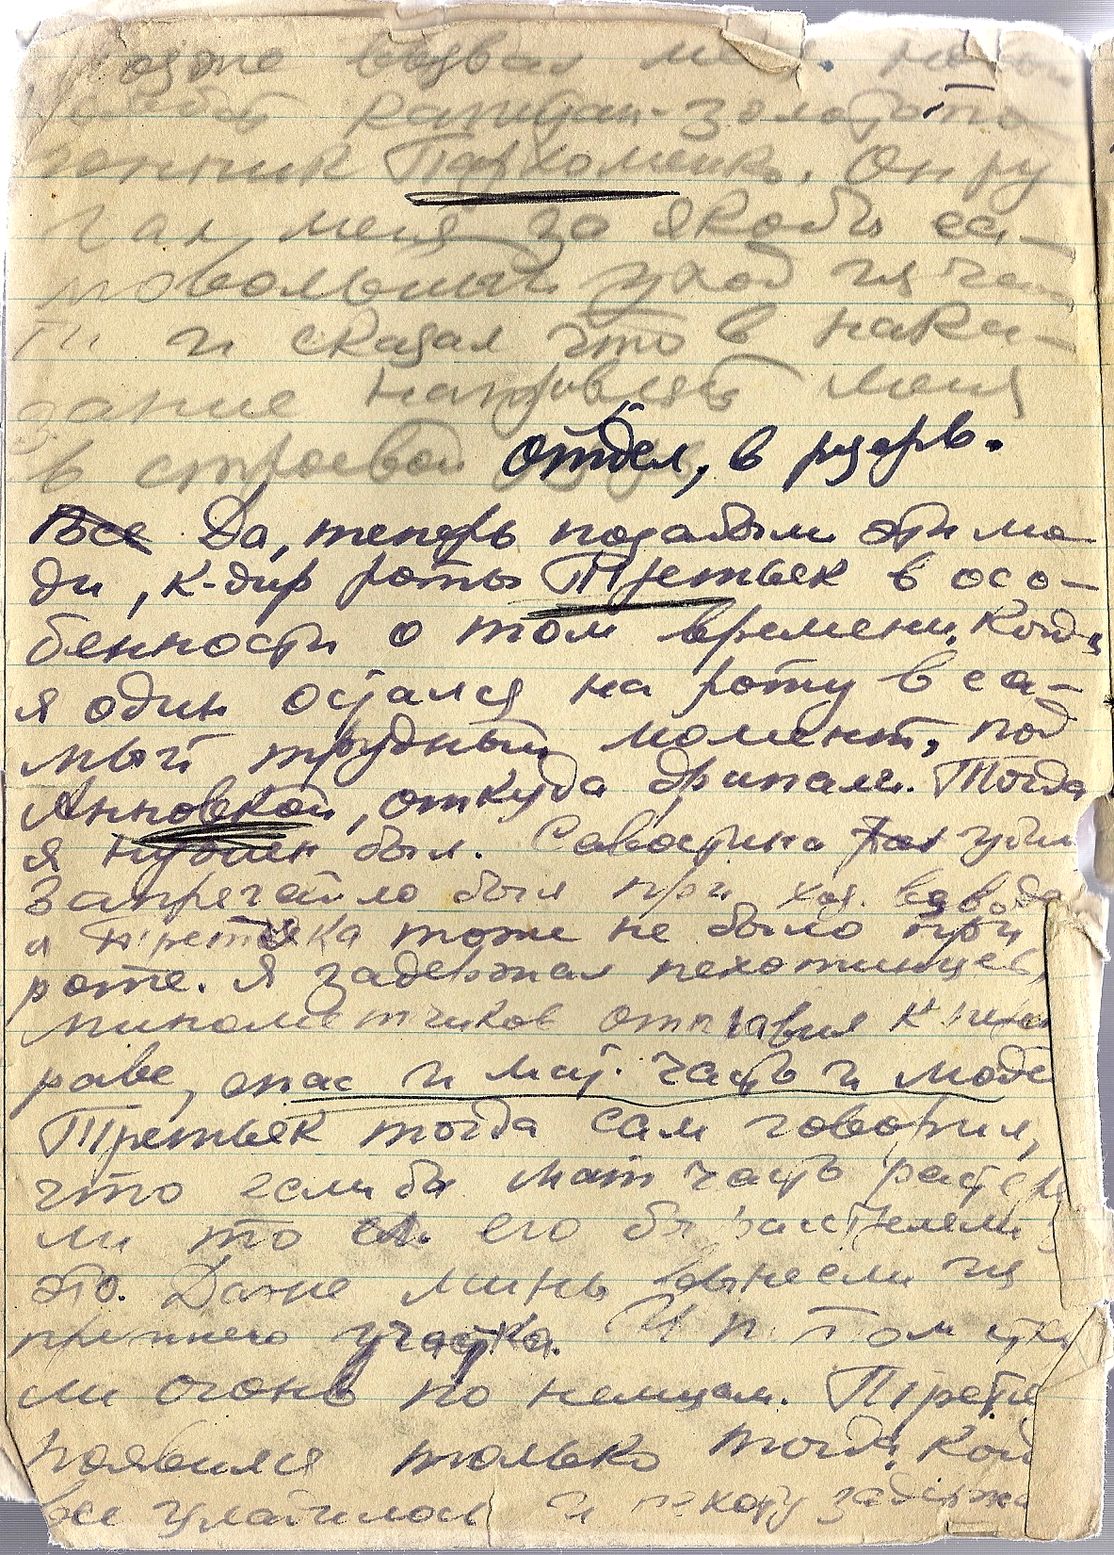 позже вызвал меня
капитан-золотопо
гонник Пархоменко. Он ру
гал меня за якобы са-
мовольный уход из час
ти и сказал что в нака-
зание направляет меня
в строевой отдел, в резерв.
Все Да, теперь позабыли эти лю-
ди, к-дир роты Третьяк в осо-
бенности о том времени, когда
я один остался на роту в са-
мый трудный момент, под
Анновкой, откуда драпали. Тогда
я нужен был. Савостина убил
Запречайло был при хоз. взводе
и Третьяка тоже не было при
роте. Я задержал пехотинцев,
минометчиков отправил к
раве, спас и мат. часть и людей
Третьяк тогда сам говорил,
что если бы мат часть растеря
ли то его бы расстреляли за
это. Даже мины вынесли из
прежнего участка. И потом откры
ли огонь по немцам. Третья
появился только тогда, когд
все уладилось и пехоту задержа